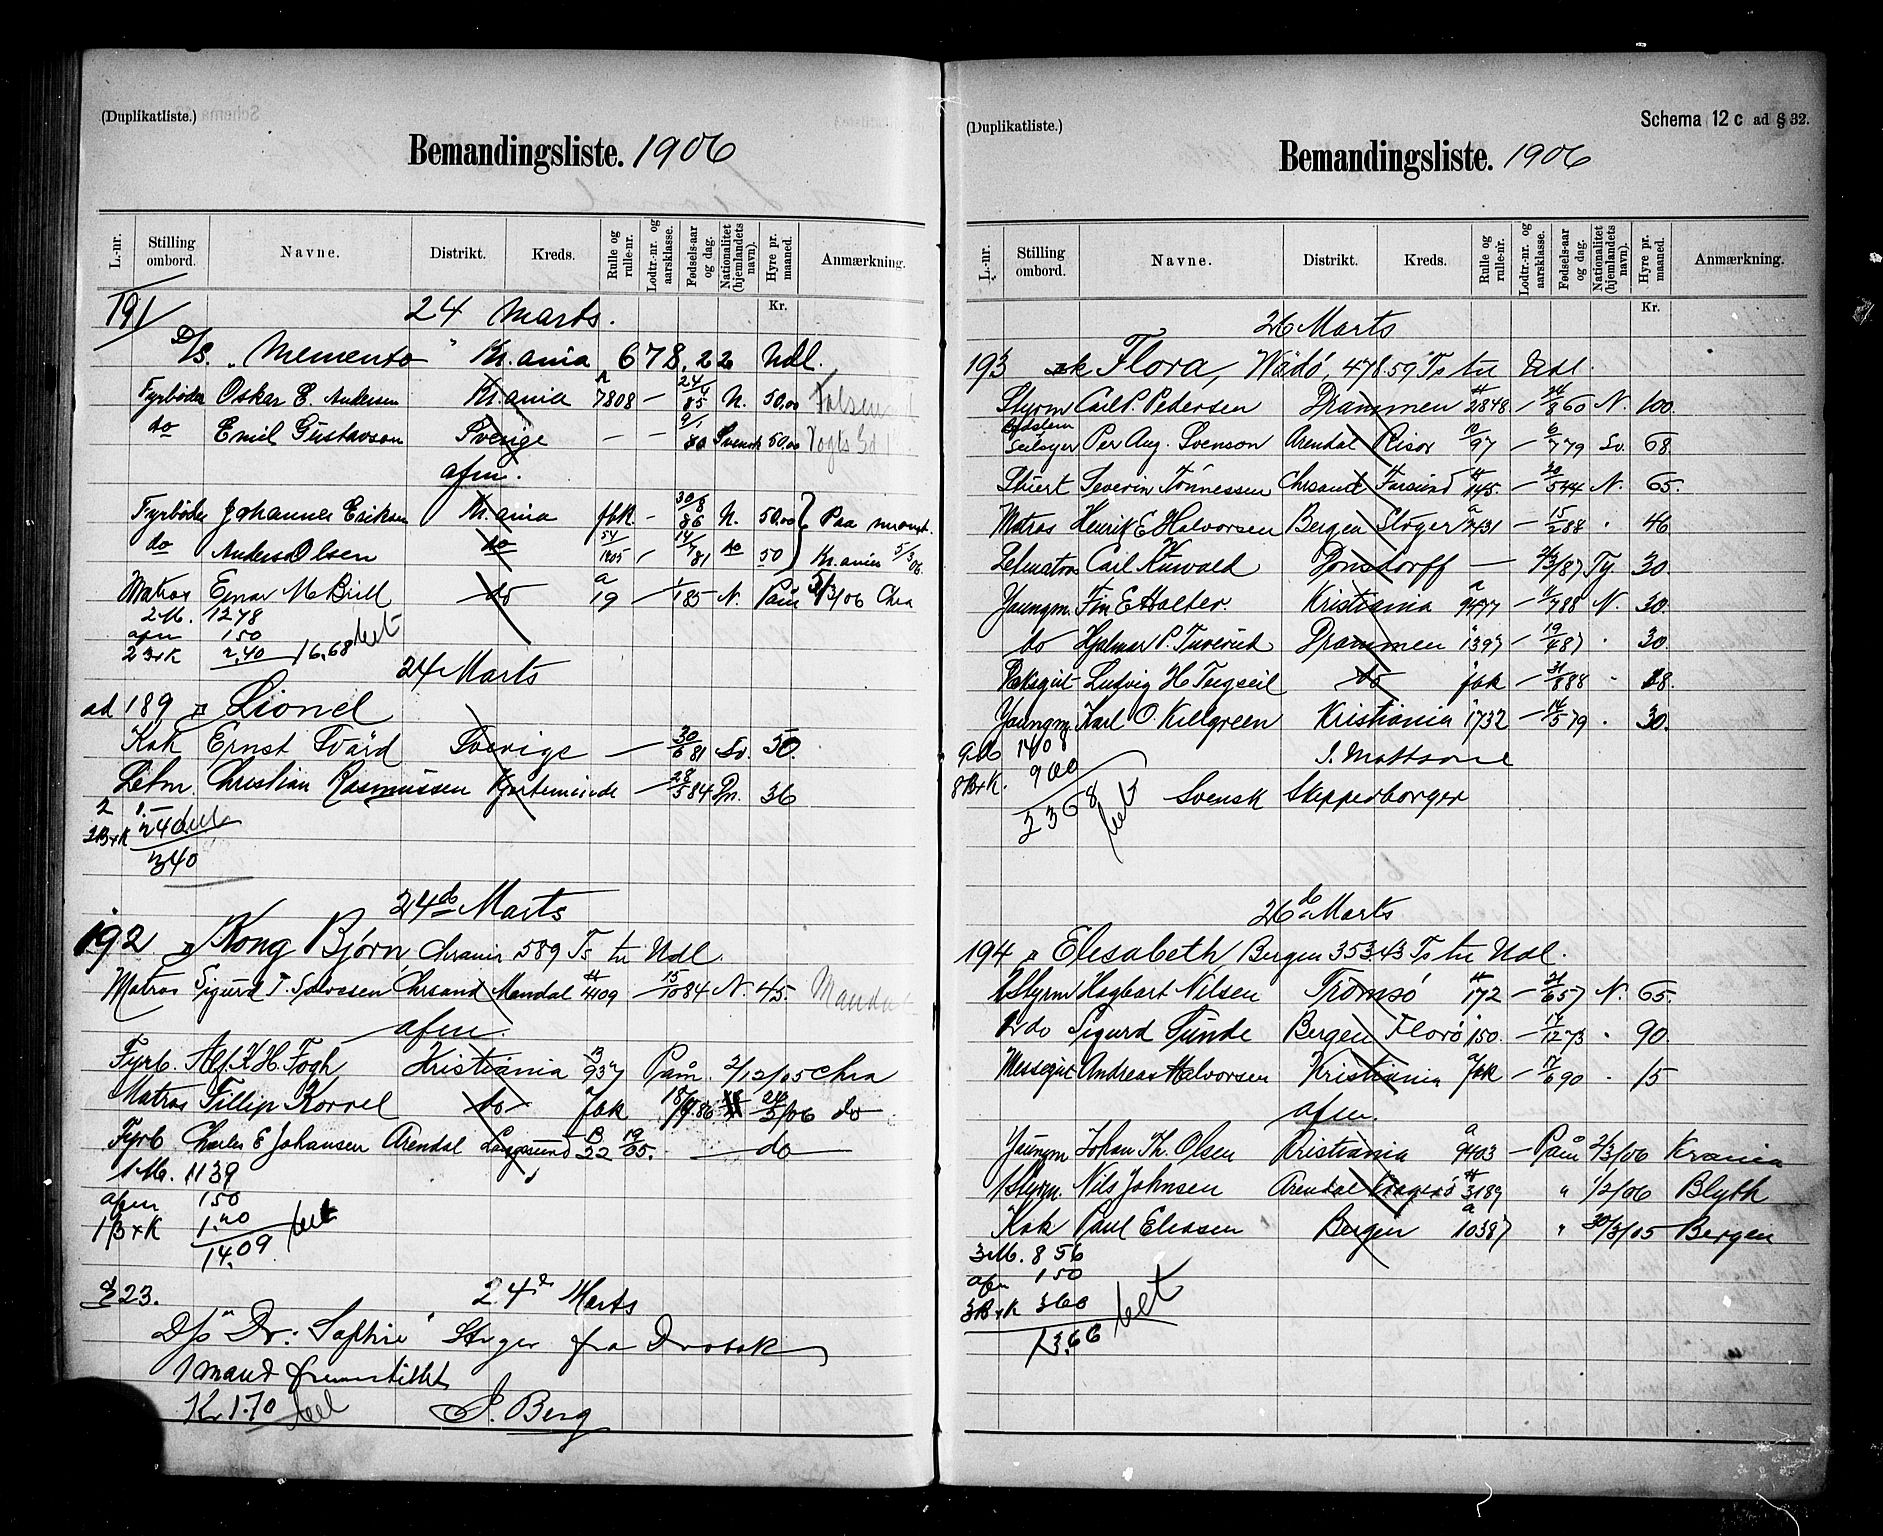 (Duplikatliste.)
Bemandingsliste. 1906
L.-nr. Stilling ombord. Navne. Distrikt. Kreds. Rulle og rulle-nr. Lodtr.-nr. og aarsklasse. Fødsels-aar og dag. Nationalitet (hjemlandets navn). Hyre pr. maaned. Anmærkning.
Kr.
191/ 24 Marts.
D/S. "Memento" Kr.ania 678,22 Udl.
Fyrbøder Oskar E. Andersen Kr.ania a 7808 — 24/4 85 N. 50,00
do Emil Gustavson Sverige — — 9/1 80 Svensk 50,00 Vogts Gd
afm.
Fyrbøder Johannes Erikson Kr.ania fbk. — 30/8 86 N. 50,00 Paa mønst.
do Anders Olsen do 54/1905 — 14/7 81 do 50 Kr.ania 5/3 06.
Matros Einar M Brill do a 19 — 85 N. Paam 3/06 Chra
2 M. 1278
afm 150
2 B+K 2.40 16,68 bet
24 Marts
ad 189 Lionel
Kok Ernst Svärd Sverige — 30/6 81 Sv. 50.
Letm. Christian Rasmussen Kjerteminde — 28/5 84 Dn. 36
2
2B+K 240 bet
340
24de Marts
192 Kong Bjørn, Chrania 589 Ts til Udl.
Matros Sigurd T. Salvesen Chrsand Mandal 4109 — 15/10 84 N. 45. Manda
afm.
Fyrb. Alf. K. H. Fogh Kristiania B 937 Paam. 2/12/05 Chra
Matros Fillip Korrel do Fbk 86 /06 do
Fyrb Charles E Johansen Arendal Langesund B 22 19/05. — do —
1 M. 1139
afm 150
1 B+K 1.20 bet
14.09
§23. 24de Marts
D/S "Dr: Sophie" Slager fra Drøbak
1 mand fremstillet
Kr. 1.70 bet S. Berg
(Duplikatliste.) Schema 12 c ad § 32.
Bemandingsliste. 1906
L.-nr. Stilling ombord. Navne. Distrikt. Kreds. Rulle og rulle-nr. Lodtr.-nr. og aarsklasse. Fødsels-aar og dag. Nationalitet (hjemlandets navn). Hyre pr. maaned. Anmærkning.
Kr.
26 Marts
193 Flora, Wädö, 478.59 Ts til Udl.
Styrm Carl P. Pedersen Drammen 2848 — 24/8 60 N. 100.
Seilsyer Per Aug. Svenson Arendal Risør 10/97 — 6/7 79 Sv. 68.
Stuert Severin Tønnessen Chrsand Farsund 145. — 20/5 44 N. 65.
Matros Henrik E Halvorsen Bergen a 2431 — 15/2 88 " 46
Letmatros Carl Kuwald — /87 Ty. 30.
Joungm. Fin E Halter. Kristiania a 9477 — 1/7 88 N. 30.
do Hjalmar P. Tuverud Drammen 1397 — 19/4 87 " 30.
Dæksgut Ludvig H Tugseil do fbk — 31/8 88 " 28.
Joungm. Karl O. Killgreen Kristiania 1732 — 14/5 79 " 30.
9 M 1408 J. Mattsone
8B+K. 900
2368 bet Svensk Skepperborger
26de Marts
194 Elisabeth Bergen 353.43 Ts til Udl.
2 Styrm Hagbart Nilsen Tromsø 172 — 21/6 57 N. 65.
2 do Sigurd Sunde Bergen Florø 150. — 17/12 73 " 90.
Messegut Andreas Halvorsen Kristiania Fbk — 17/6 90 " 15
afm.
Joungm Johan Th. Olsen Kristiania a 9403 — Paam 2/3/06 Krania
1 Styrm. Nils Johnsen Arendal Kragerø 3189 " 1/2/06 Blyth
Kok Paul Eliasen Bergen a 10387 " 30/3/05 Bergen
3 M. 8 56
afm 150
3B+K 360 bet
1366